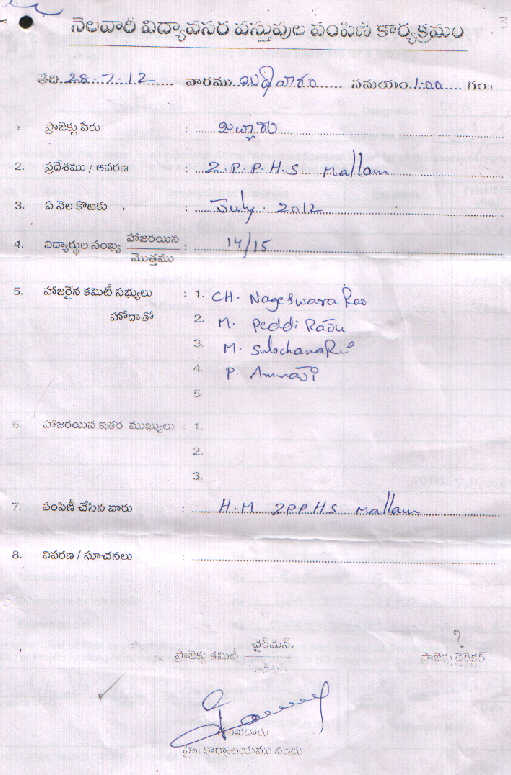 నెలవారీ విద్యావసర వస్తువుల పంపిణి కార్యక్రమం
తేది 28.7.12 వారము బుధవారం సమయం 1:00 గం॥
1. ప్రాజెక్టు పేరు :
2. ప్రదేశము / ఆవరణ : Z.P.P.H.S Mallam
3. ఏ నెల కొఱకు : July. 2012
4. విద్యార్థుల సంఖ్య హాజరయిన / మొత్తము : 14/15
5. హాజరైన కమిటీ సభ్యులు : 1. CH. Nageswara Rao
హోదాతో 2. M. Peddi Raju
3. M.
4. P.
5.
6. హాజరయిన ఇతర ముఖ్యులు : 1.
2.
3.
7. పంపిణీ చేసిన వారు : H.M ZPPHS Mallam
8. వివరణ / సూచనలు :
ఛైర్మన్
ప్రాజెక్టు కమిటీ
ప్రాజెక్టు డైరెక్టర్